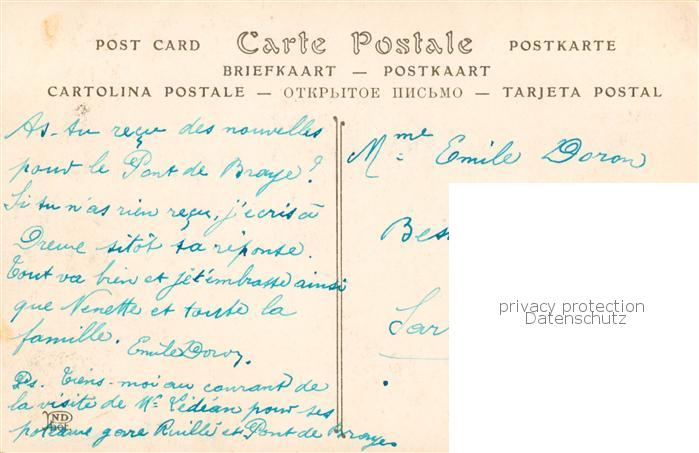 POST CARD Carte Postale POSTKARTE
BRIEFKAART — POSTKAART
CARTOLINA POSTALE — ОТКРЫТОЕ ПИСЬМО — TARJETA POSTAL
As-tu reçu des nouvelles
pour le Pont de Braye?
Si tu n'as rien reçu, j'écris à
sitôt ta réponse.
Tout va bien et je t'embrasse ainsi
que Nenette et toute la
famille. Emile Doron
Ps. Tiens-moi au courant de
la visite de Mr pour ses
poteaux gare Ruillé et Pont de Braye
ND
Mme Emile Doron
Bess
Sar
privacy protection
Datenschutz